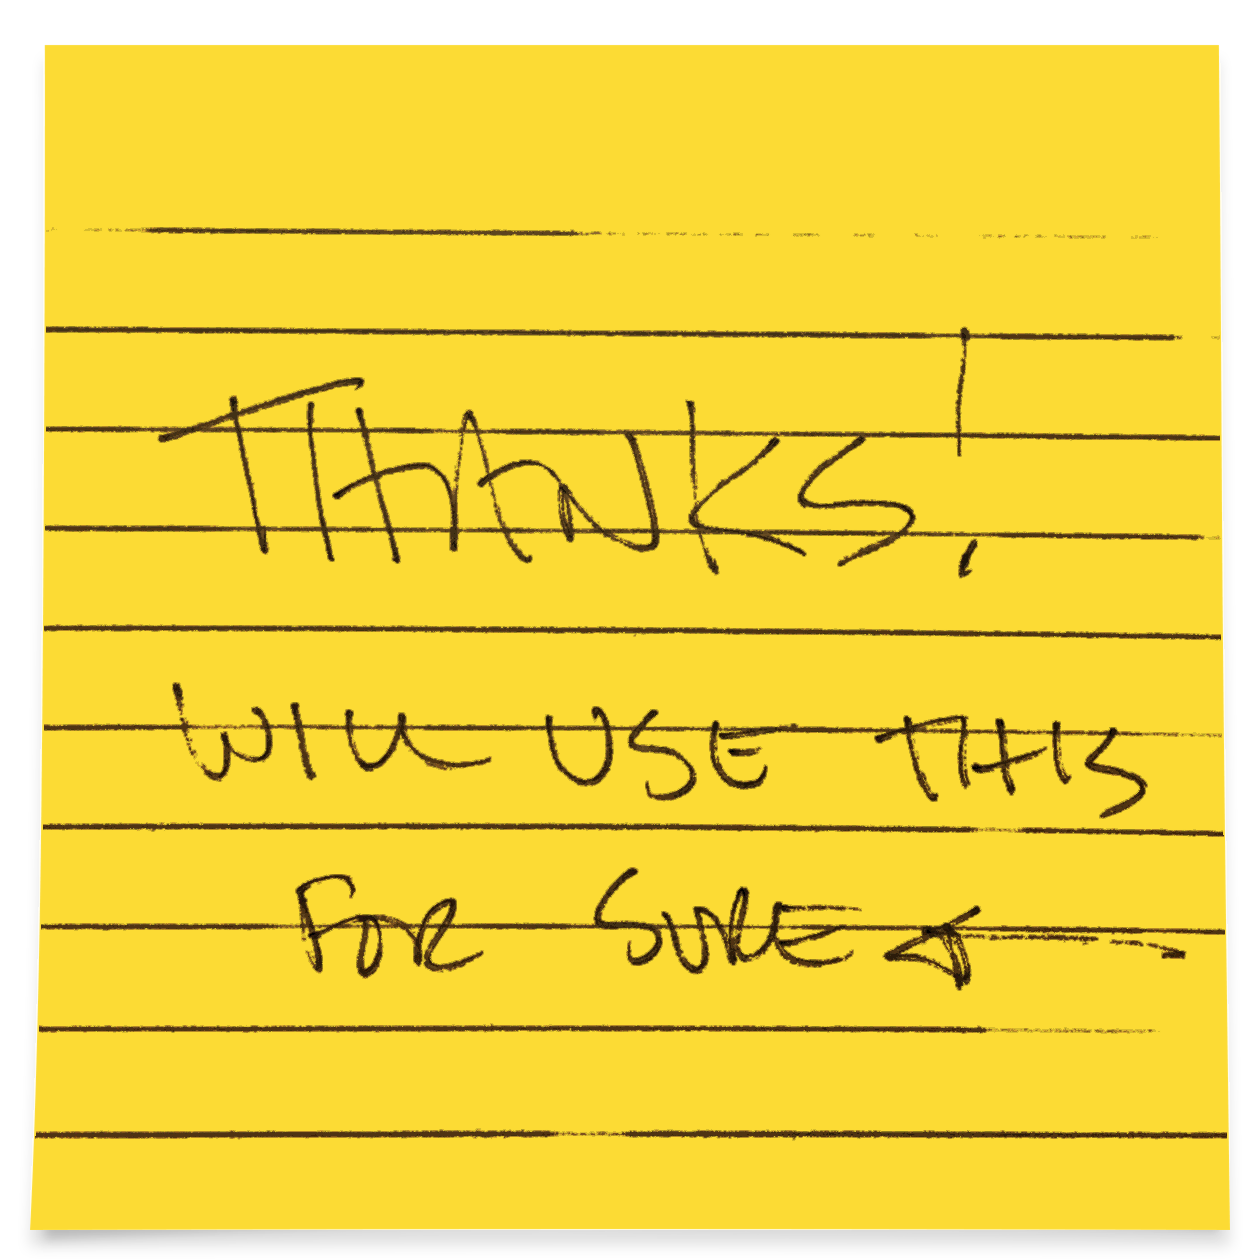 THANKS!
WILL USE THIS
FOR SURE